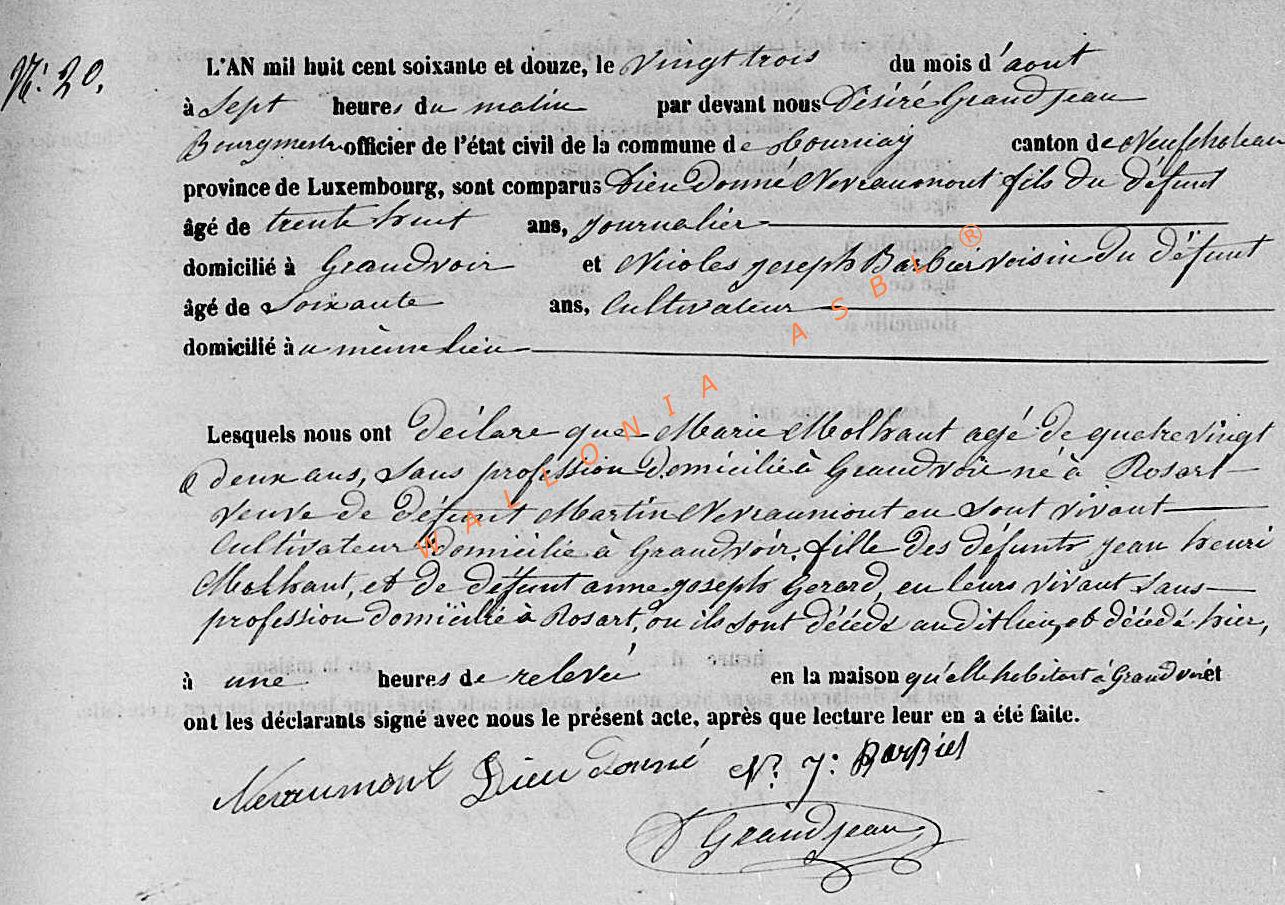 N°: 20.
L'AN mil huit cent soixante et douze, le vingt trois du mois d'aout
à Sept heures du matin par devant nous Désiré Grandjean
Bourgmestre officier de l'état civil de la commune de Tournay canton de Neufchateau
province de Luxembourg, sont comparus Dieudonné Nevraumont fils du défunt
âgé de trente huit ans, journalier
domicilié à Grandvoir et Nicolas joseph Barbier voisin du défunt
âgé de Soixante ans, Cultivateur
domicilié au même lieu
Lesquels nous ont déclare que Marie Molhant agé de quatre vingt
deux ans, sans profession domicilié à Grandvoir né à Rosart
veuve de défunt Martin Nevraumont en sont vivant
Cultivateur domicilié à Grandvoir, fille des défunts jean henri
Molhant, et de défunt anne joseph Gerard, en leurs vivant sans
profession domicilié à Rosart, ou ils sont décédé audit lieu, et décédé hier,
à une heures de relevée en la maison qu'elle habitait à Grandvoir et
ont les déclarants signé avec nous le présent acte, après que lecture leur en a été faite.
Neraumont Dieudonné N. J: Barbier
D Grandjean
WALLONIA ASBL ®